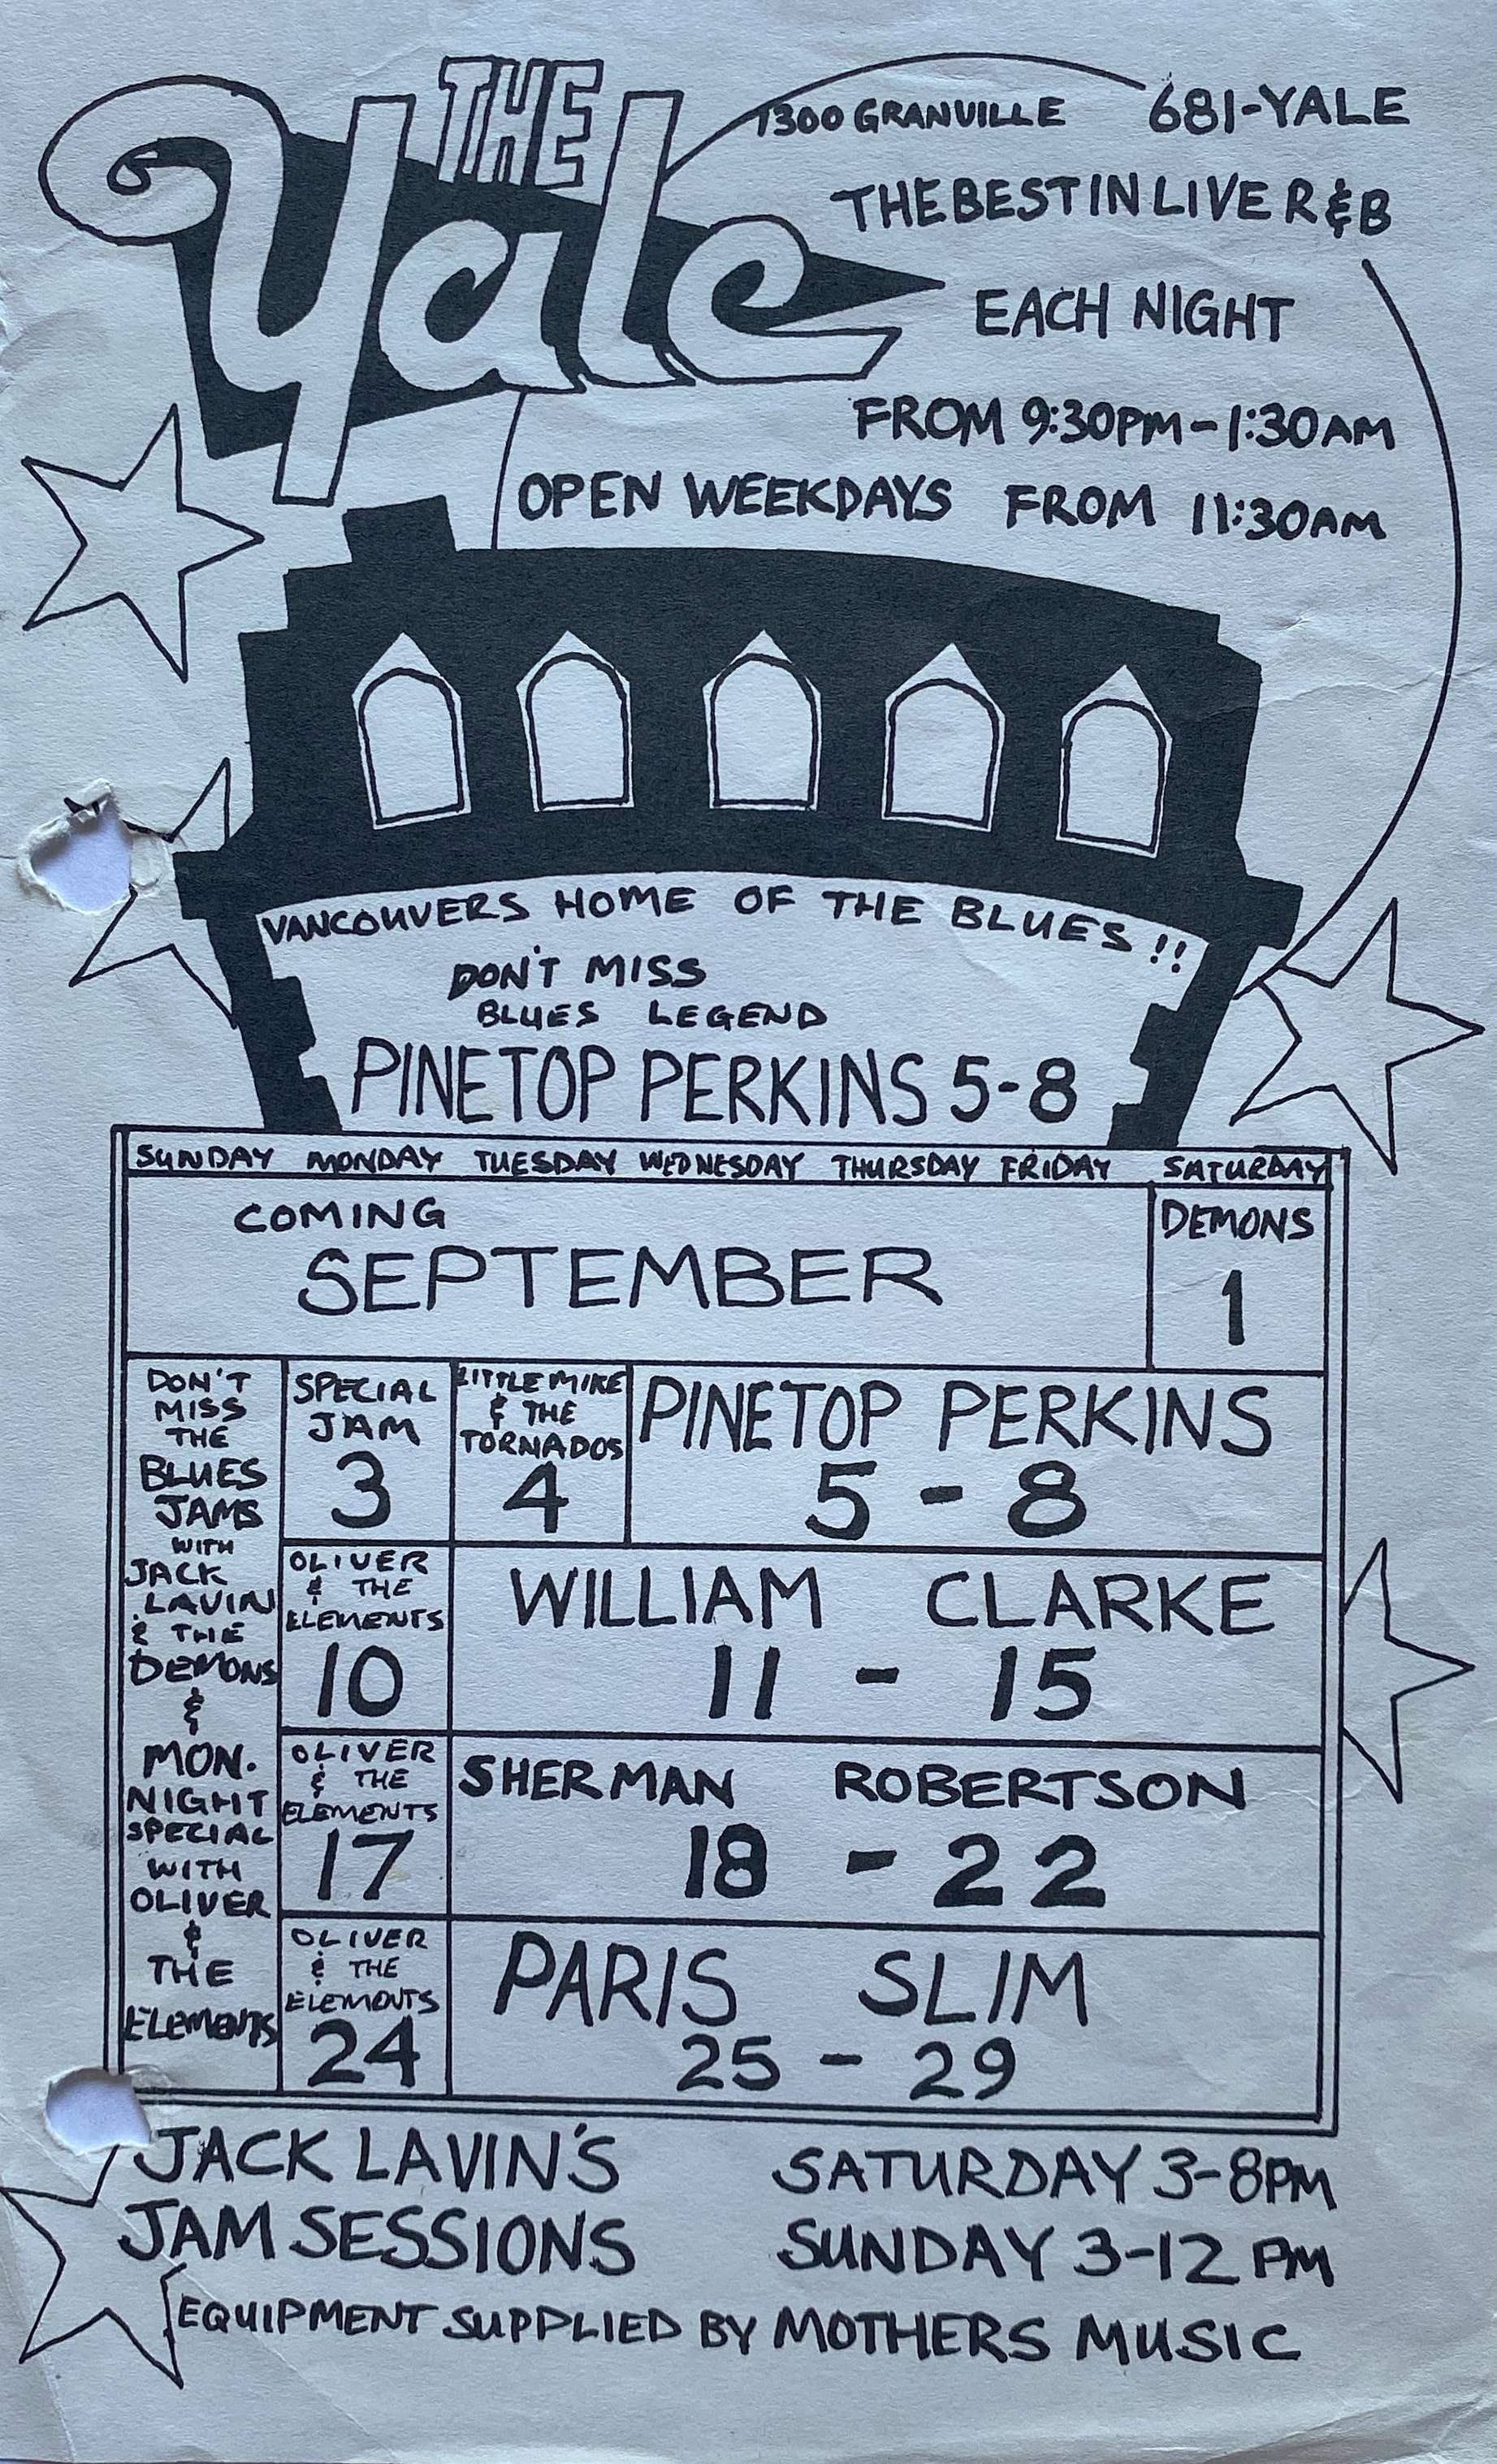 THE
Yale
1300 GRANVILLE 681-YALE
THE BEST IN LIVE R&B
EACH NIGHT
FROM 9:30PM-1:30AM
OPEN WEEKDAYS FROM 11:30AM
VANCOUVERS HOME OF THE BLUES!!
DON'T MISS
BLUES LEGEND
PINETOP PERKINS 5-8
SUNDAY MONDAY TUESDAY WEDNESDAY THURSDAY FRIDAY SATURDAY
COMING
SEPTEMBER
DEMONS
1
DON'T
MISS
THE
BLUES
JAMS
WITH
JACK
LAVIN
& THE
DEMONS
&
MON.
NIGHT
SPECIAL
WITH
OLIVER
&
THE
ELEMENTS
SPECIAL
JAM
3
LITTLE MIKE
& THE
TORNADOS
4
PINETOP PERKINS
5 - 8
OLIVER
& THE
ELEMENTS
10
WILLIAM CLARKE
11 - 15
OLIVER
& THE
ELEMENTS
17
SHERMAN ROBERTSON
18 - 22
OLIVER
& THE
ELEMENTS
24
PARIS SLIM
25 - 29
JACK LAVIN'S SATURDAY 3-8PM
JAM SESSIONS SUNDAY 3-12 PM
EQUIPMENT SUPPLIED BY MOTHERS MUSIC